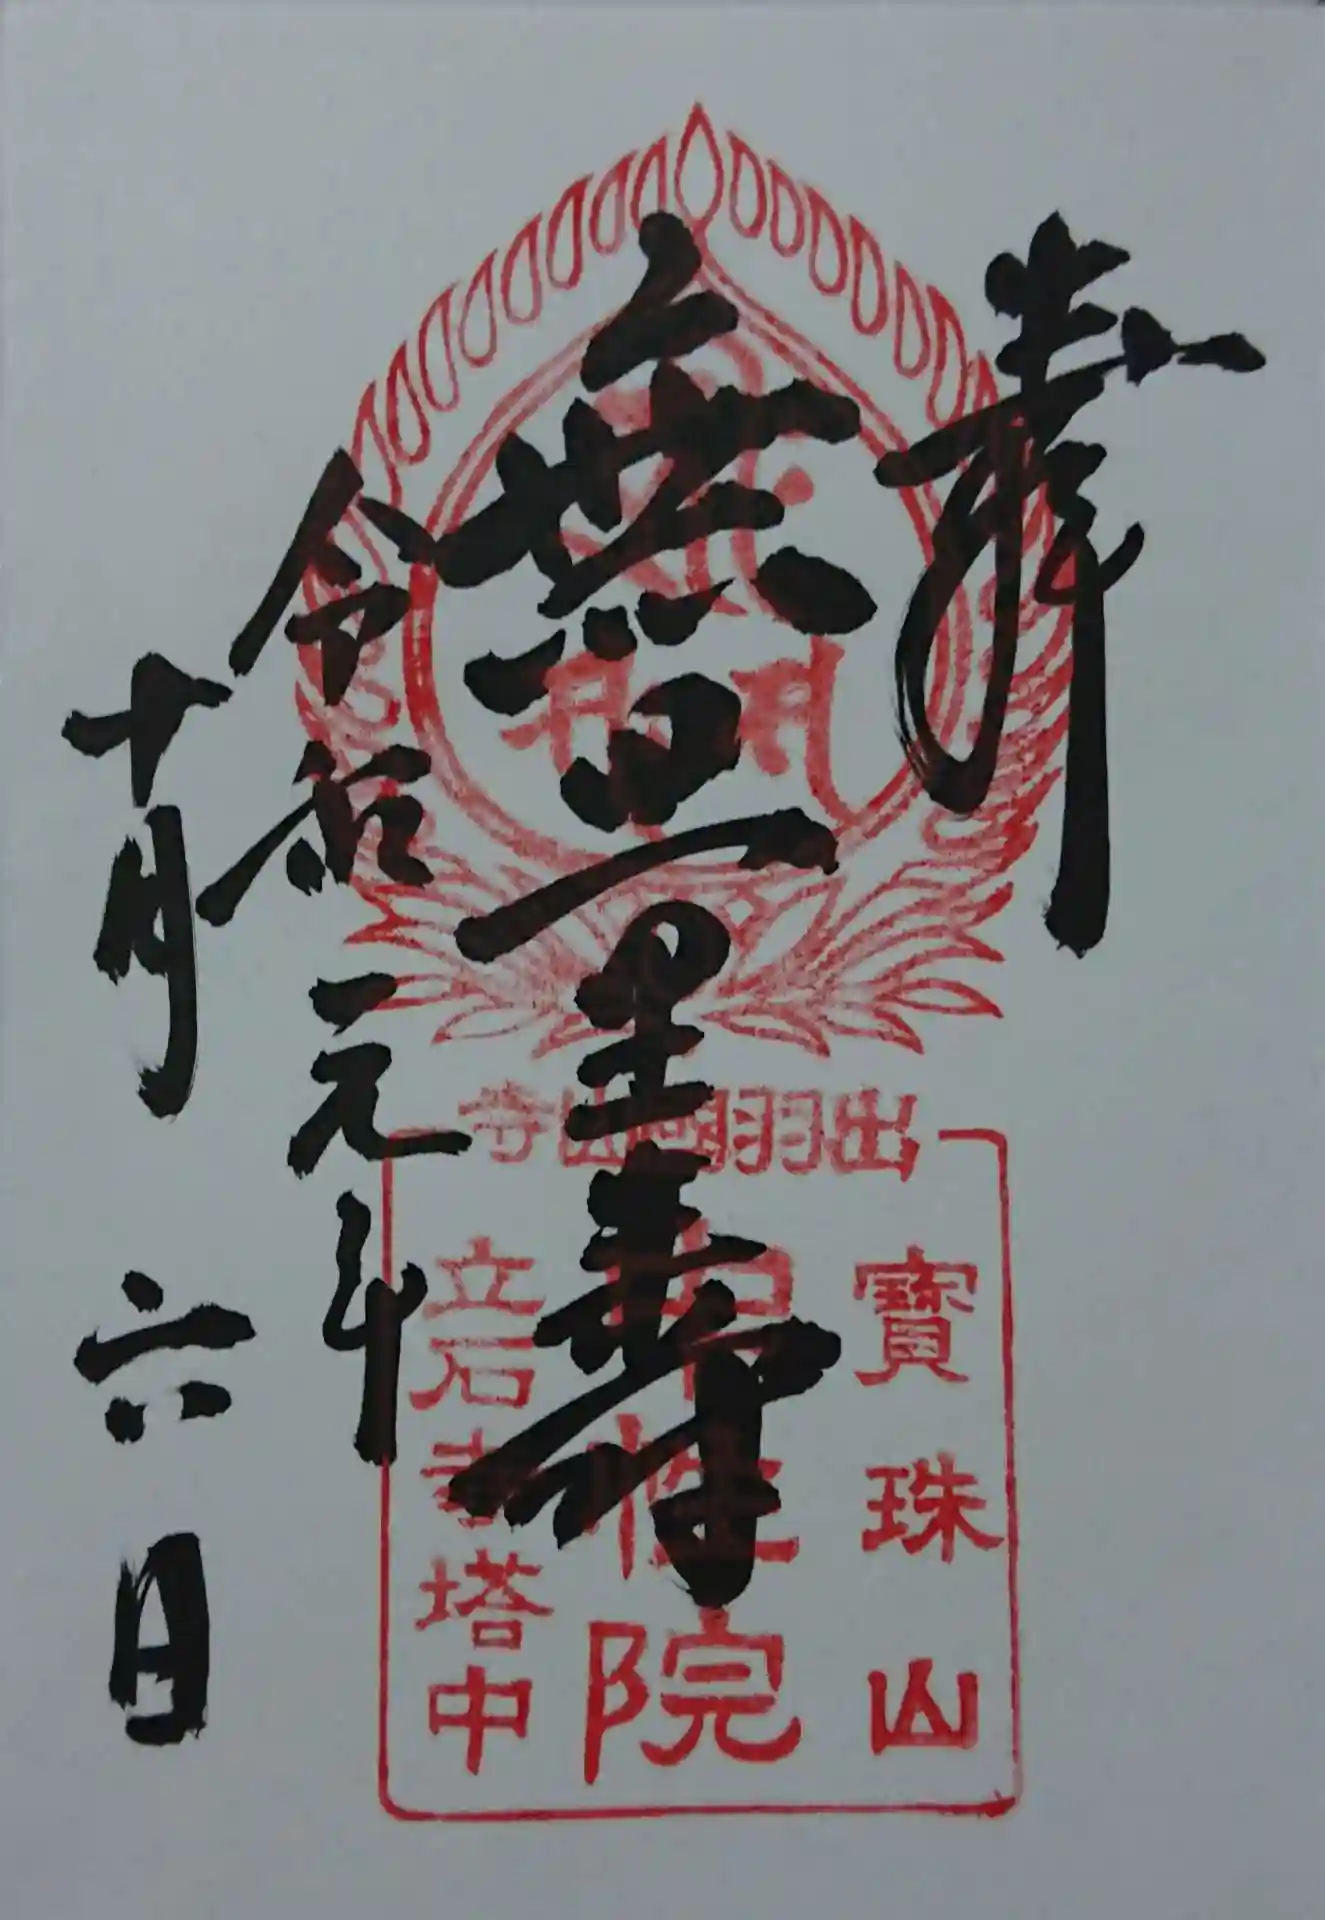 奉拝
無量壽
令和元年
十月六日
出羽國山寺
寶珠山
中性院
立石寺塔中